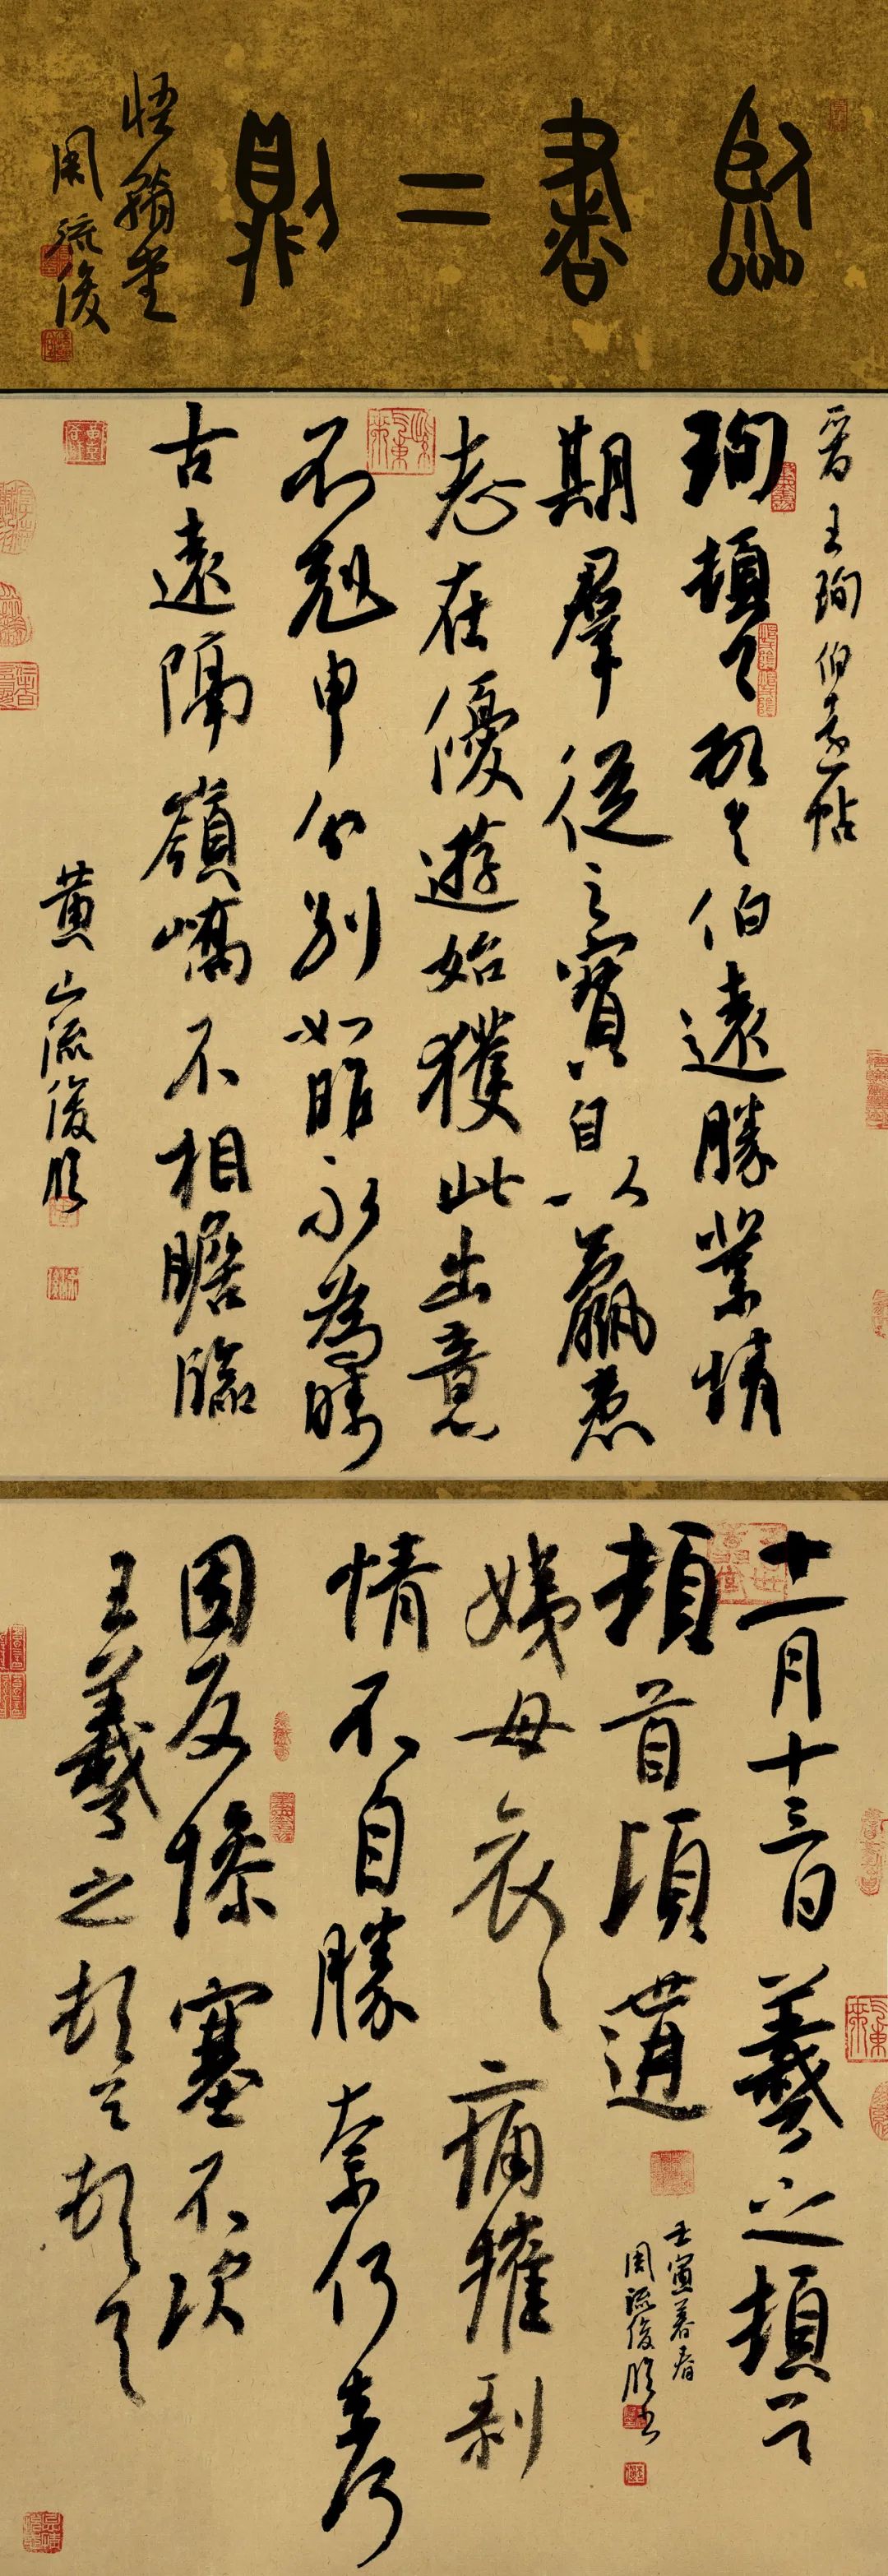 臨書二則
周流俊
晉王珣伯遠帖
珣頓首頓首伯遠勝業情
期羣從之寶自以羸患
志在優遊始獲此出意
不剋申分別如昨永為疇
古遠隔嶺嶠不相瞻臨
黃山流俊臨
十一月十三日羲之頓首
頓首頃遘
壬寅暮春
周流俊臨書
姨母哀哀痛摧剝
情不自勝奈何奈何
因反慘塞不次
王羲之頓首頓首